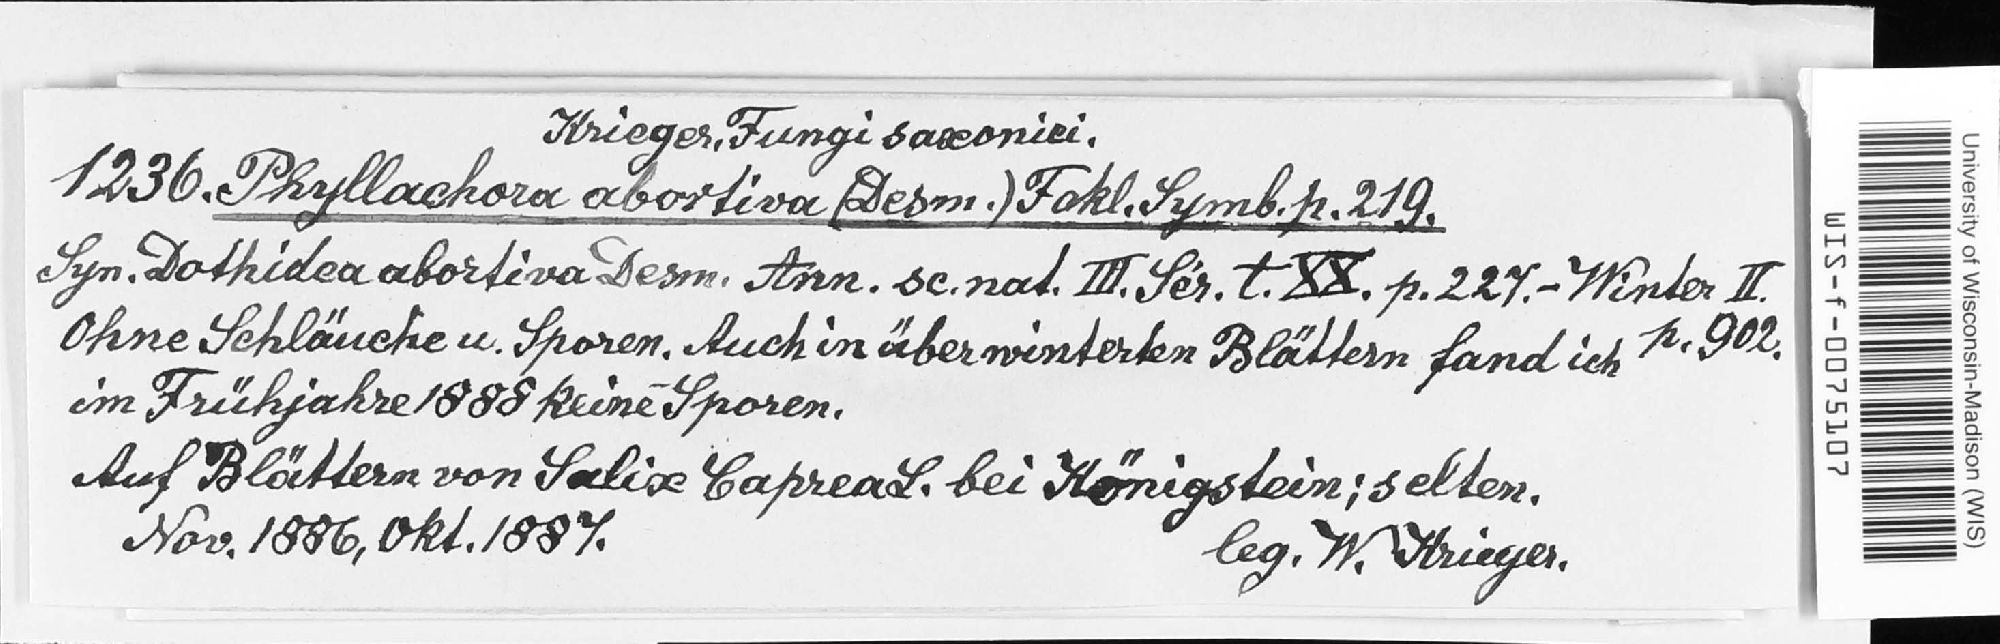 Krieger. Fungi saxonici.
1236. Phyllachora abortiva (Desm.) Fckl. Symb. p. 219.
Syn. Dothidea abortiva Desm. Ann. sc. nat. III. Sér. t. XX. p. 227. - Winter II. p. 902.
Ohne Schläuche u. Sporen. Auch in überwinterten Blättern fand ich
im Frühjahre 1888 keine Sporen.
Auf Blättern von Salix Caprea L. bei Königstein; selten.
Nov. 1886, Okt. 1887.
leg. W. Krieger.
University of Wisconsin-Madison (WIS)
WIS-f-0075107